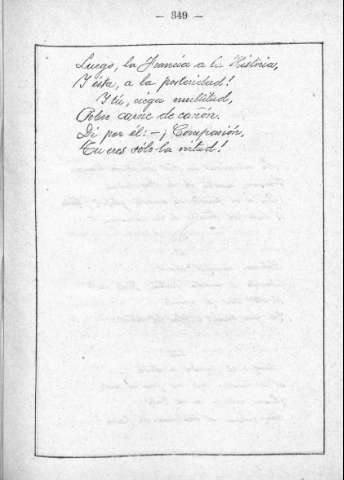 — 349 —
Luego, la Francia a la Historia,
Y ésta, a la posteridad!
Y tú, ciega multitud,
Pobre carne de cañón.
Di por él: — ¡Compasión,
Tu eres sólo la virtud!